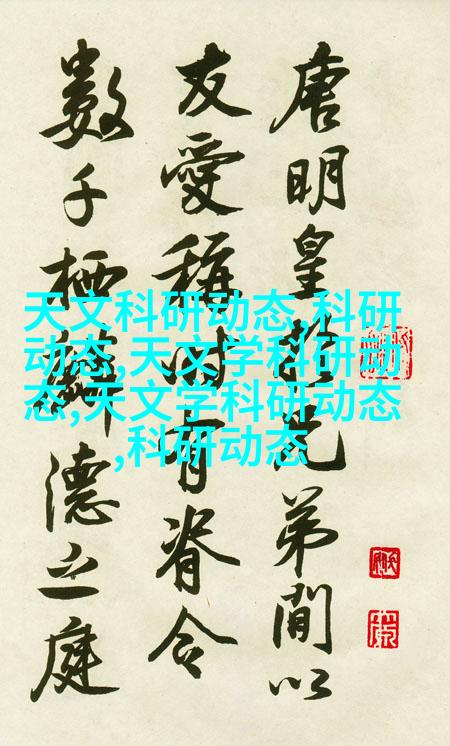 唐明皇於兄弟間以
友愛稱時有脊令
數千栖麟德之庭
天文科研动态,科研
动态,天文学科研动
态,天文学科研动态
,科研动态